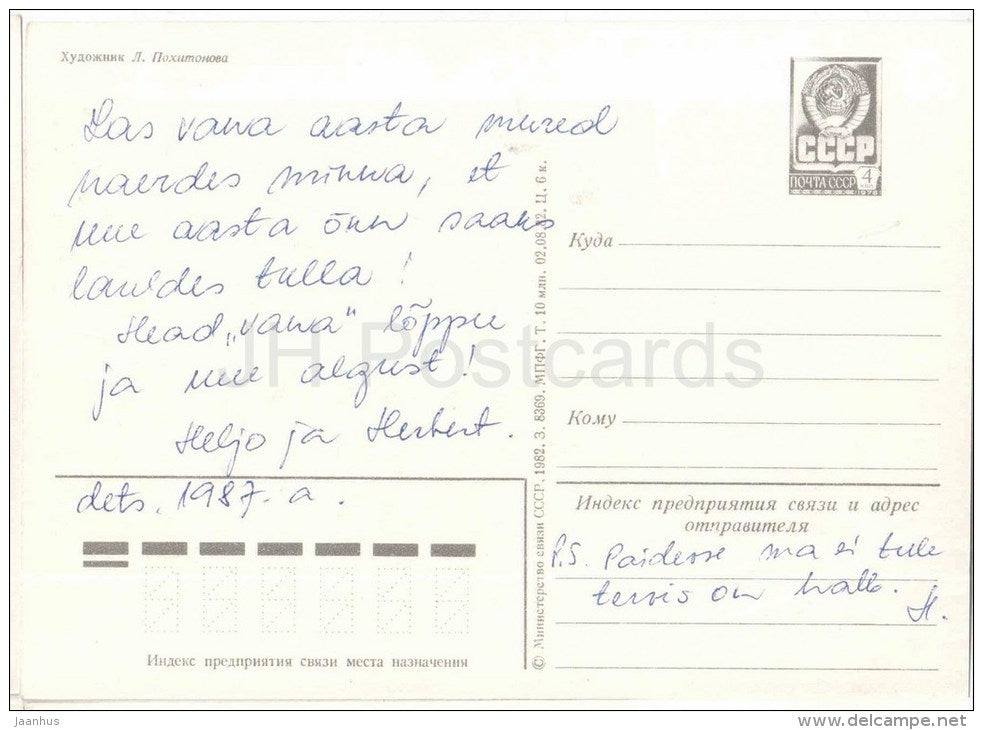 Художник Л. Похитонова
СССР
ПОЧТА СССР
4
КОП
1976
Las vana aasta mured
naerdes minna, et
uue aasta õnn saaks
lauldes tulla!
Head „vana“ lõppu
ja uue algust!
Heljo ja Herbert.
dets. 1987. a.
Индекс предприятия связи места назначения
© Министерство связи СССР. 1982. З. 8369. МПФГ. Т. 10 млн. 02.08.82. Ц. 6 к.
Куда
Кому
Индекс предприятия связи и адрес
отправителя
P.S. Paidesse ma ei tule
tervis on halb.
H.
JH Postcards
jaanhus
www.delcampe.net